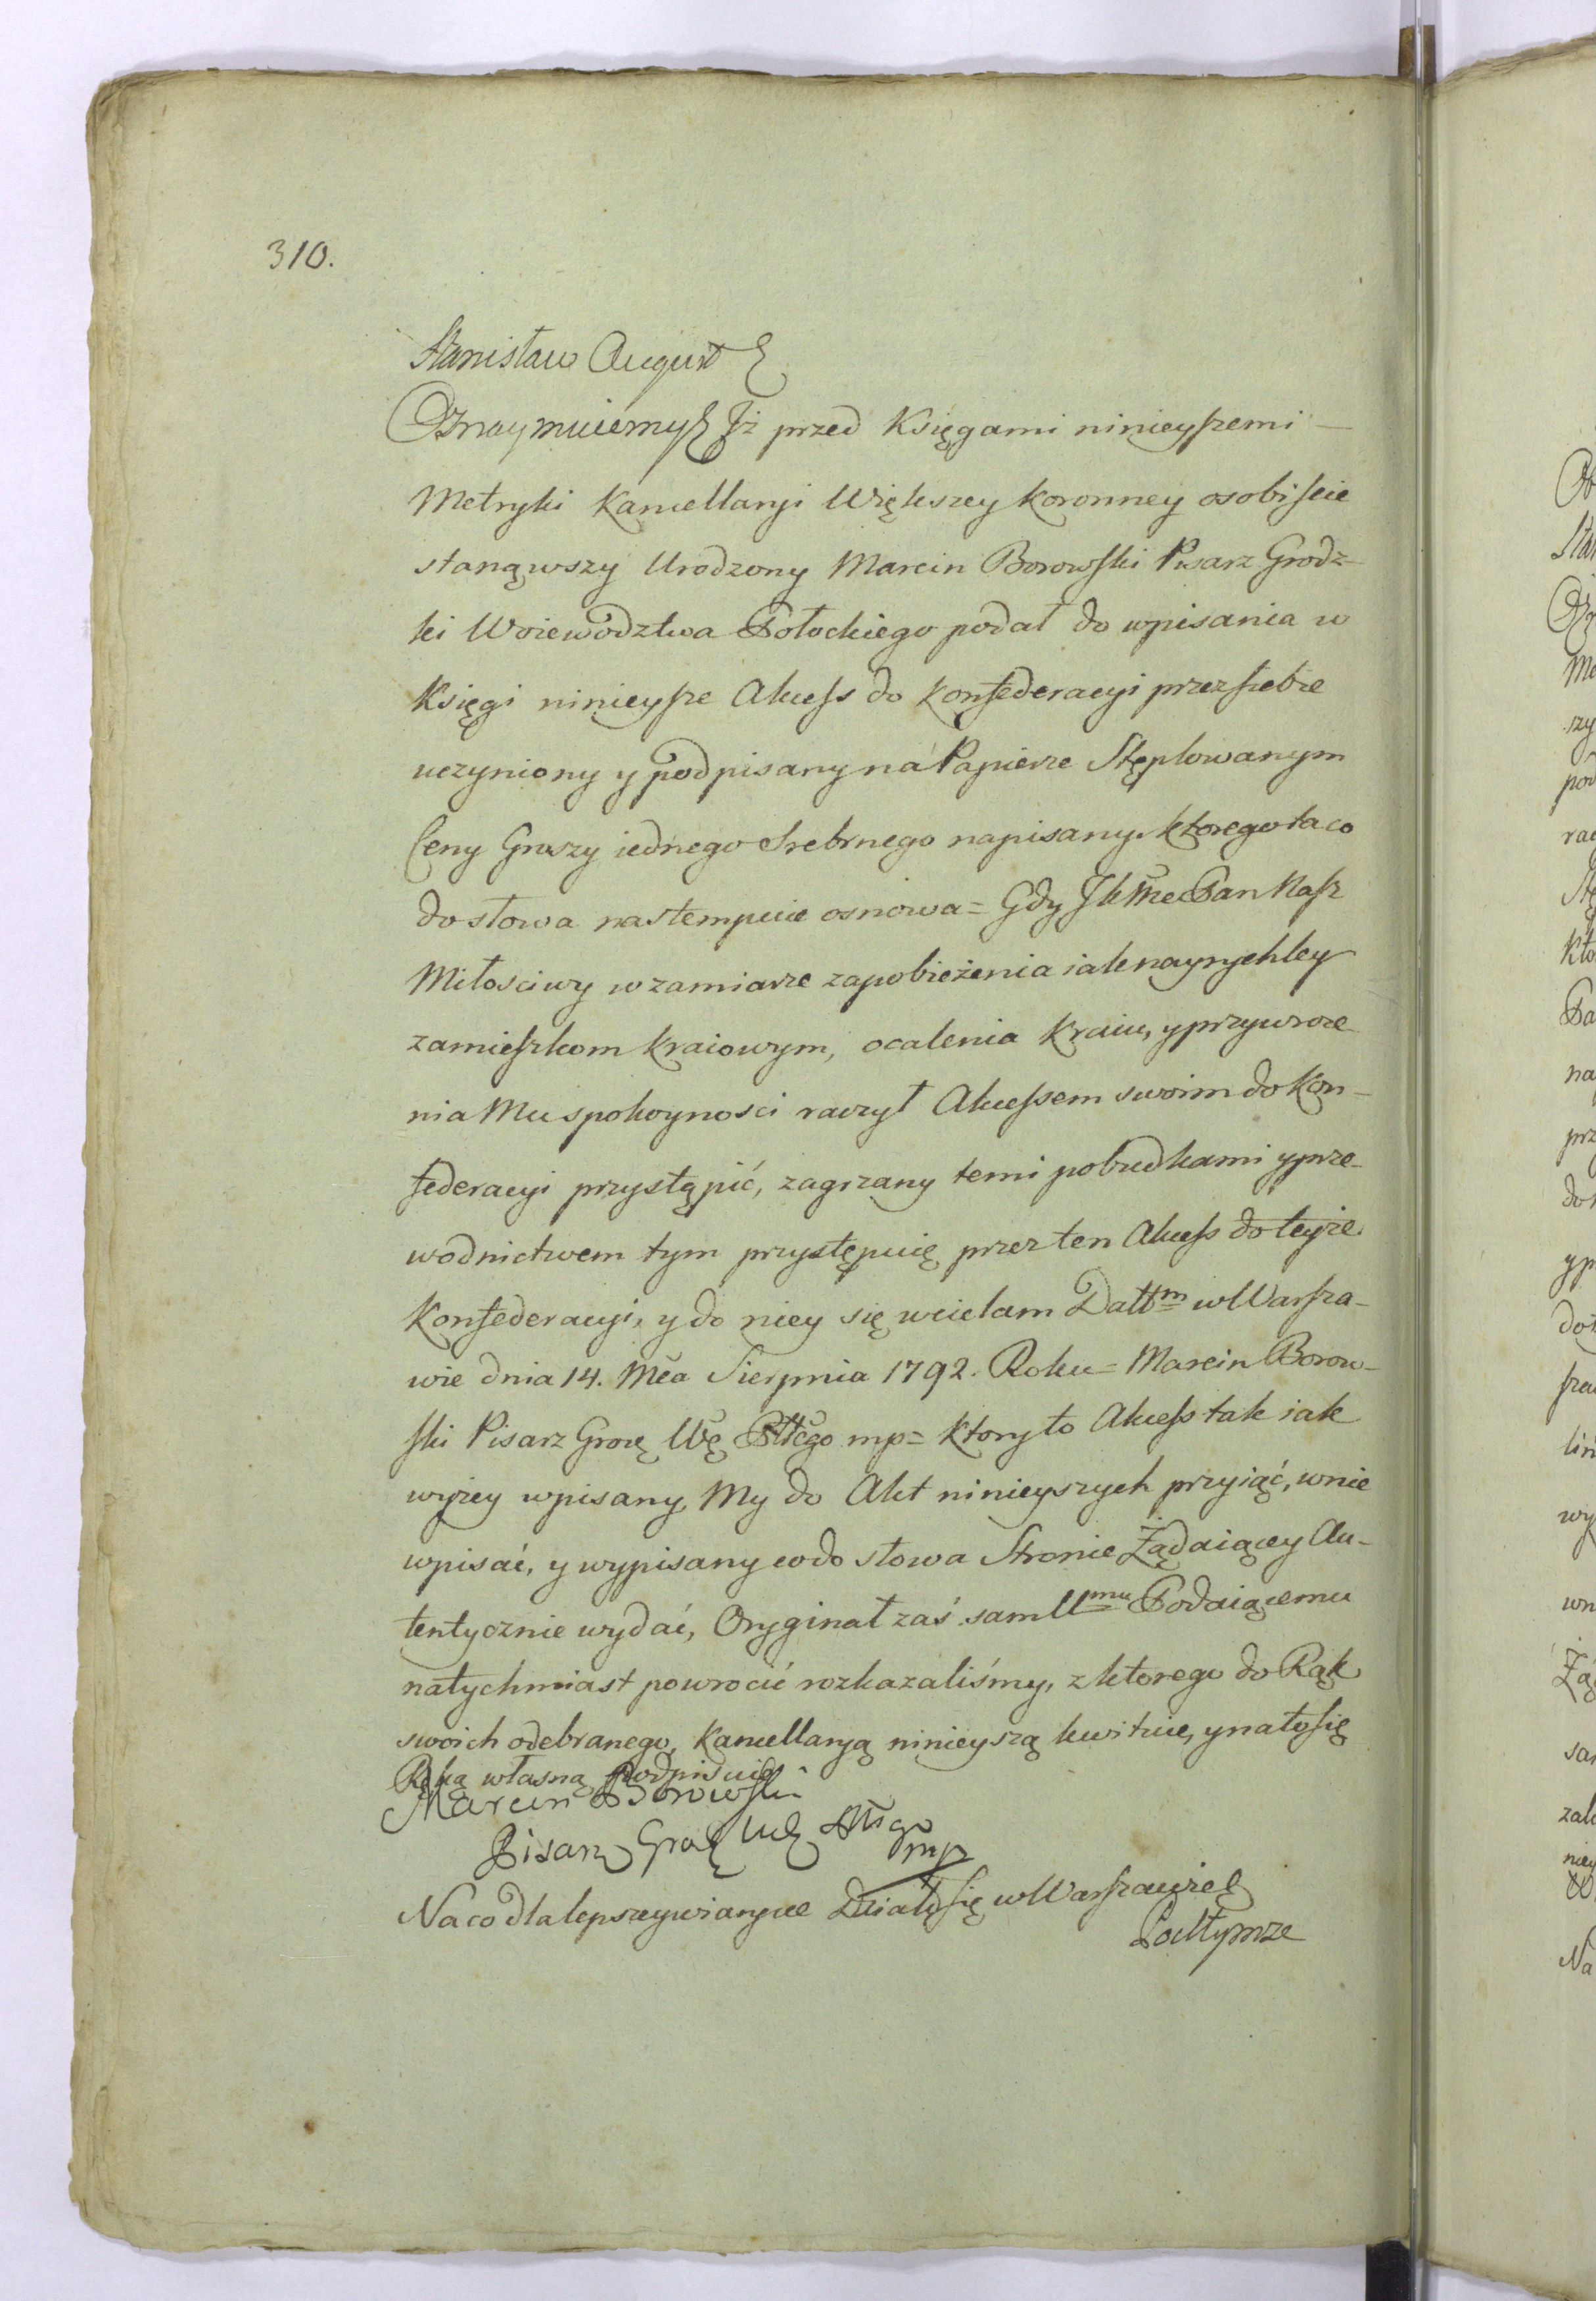 310.
Stanisław August
Oznaymuiemy Iż przed Księgami ninieyszemi
Metryki Kancellaryi Większey Koronney osobiscie
stanąwszy Urodzony Marcin Borowski Pisarz Grodz-
ki Woiewodztwa Połockiego podał do wpisania w
Księgi ninieysze Akcess do Konfederacyi przez siebie
uczyniony y podpisany na Papierze Stęplowanym
Ceny Groszy iednego Srebrnego napisany, ktorego ta co
do słowa nastempuie osnowa = Gdy JK Mc Pan Nasz
Miłosciwy w zamiarze zapobieżenia iak nayrychley
zamieszkom kraiowym, ocalenia Kraiu, y przywroce
nia Mu spokoynosci raczył Akcessem swoim do Kon-
federacyi przystąpić, zagrzany temi pobudkami y prze-
wodnictwem tym przystępuię przez ten Akcess do teyże
Konfederacyi, y do niey się wcielam Dattm w Warsza-
wie dnia 14. Mca Sierpnia 1792. Roku = Marcin Borow-
ski Pisarz Grodz Wo Płłgo mp = ktory to Akcess tak iak
wyżey wpisany, My do Akt ninieyszych przyiąć, w nie
wpisać, y wypisany co do słowa Stronie Żądaiącey Au-
tentycznie wydać, Oryginał zaś sam Umu Podaiącemu
natychmiast powrocić rozkazaliśmy, z ktorego do Rąk
swoich odebranego, Kancellaryą ninieyszą kwituie, y na to się
Ręką własną podpisuie
Marcin Borowski
Pisarz Grodz Wo Płłgo
mp
Na co dla lepszey wiary etc Działo się w Warszawie
Pod tymże